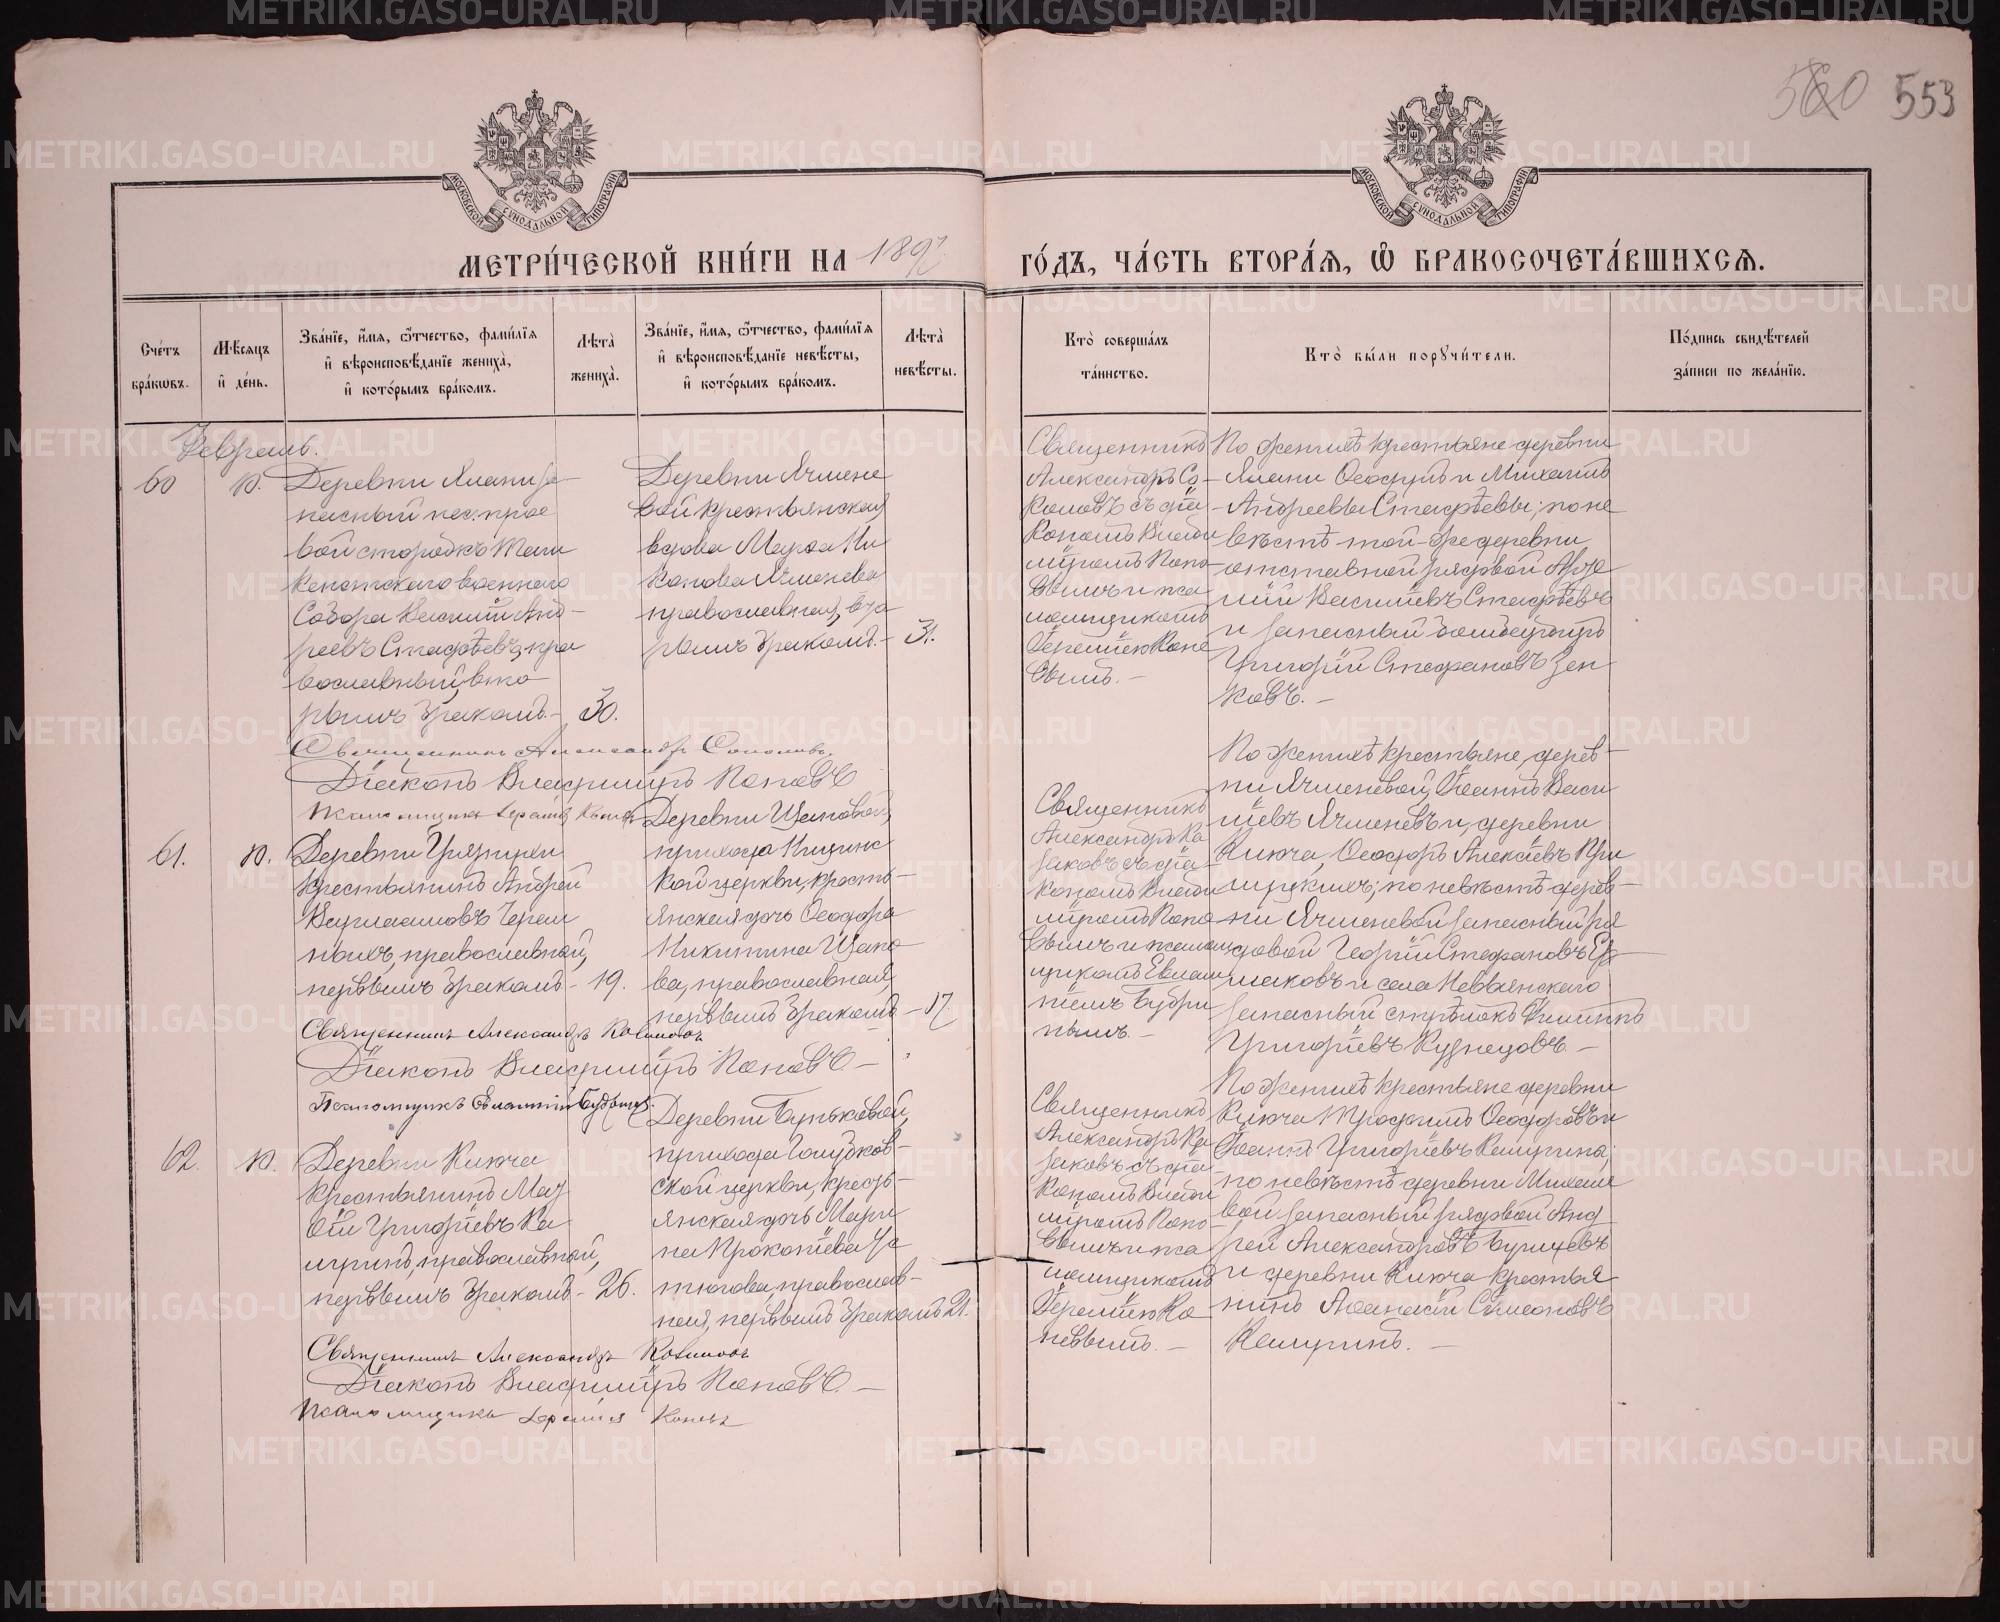 560 553
МОСКОВСКОЙ СѴНОДАЛЬНОЙ ТИПОГРАФІИ
МОСКОВСКОЙ СѴНОДАЛЬНОЙ ТИПОГРАФІИ
МЕТРИ́ЧЕСКОЙ КНИ́ГИ НА 1897
ГО́ДЪ, ЧА́СТЬ ВТОРА́Я, Ѡ҆ БРАКОСОЧЕТА́ВШИХСЯ.
Сче́тъ бра́кѡвъ.
Мѣ́сяцъ и҆ де́нь.
Зва́нїе, и҆́мя, ѻ҆́тчество, фами́лїя
и҆ вѣроисповѣ́данїе жениха̀,
и҆ кото́рымъ бра́комъ.
Лѣта̀ жениха̀.
Зва́нїе, и҆́мя, ѻ҆́тчество, фами́лїя
и҆ вѣроисповѣ́данїе невѣ́сты,
и҆ кото́рымъ бра́комъ.
Лѣта̀ невѣ́сты.
Кто̀ соверша́лъ
та́инство.
Кто̀ бы́ли порꙋчи́тели.
По́дпись свидѣ́телей
за́писи по жела́нїю.
Февраль.
60
10.
Деревни Ялани за-
пасный
Василий Анд-
реевъ Стафѣевъ, пра
вославный, вто
рымъ бракомъ. - 30.
Деревни Ячмене
вой крестьянская
вдова Марѳа Ни
конова Ячменева
православная, вто
рымъ бракомъ. - 31.
Священникъ
Александръ Со-
коловъ съ діа-
кономъ Влади
міромъ Попо-
вымъ и пса
ломщикомъ
Іереміею Коне
вымъ. -
По женихѣ крестьяне деревни
Ялани Ѳеодулъ и Михаилъ
Андреевы Стафѣевы; по не
вѣстѣ той-же деревни
отставной рядовой
Василіевъ Стафѣевъ
и запасный бомбардиръ
Григорій Стефановъ Зен
ковъ. -
Священникъ Александръ Соколовъ.
Діаконъ Владиміръ Поповъ
Псаломщикъ Іеремія Коневъ
61.
10.
Деревни
крестьянинъ Андрей
Варлаамовъ Черем
ныхъ, православный,
первымъ бракомъ - 19.
Деревни Щаповой,
прихода Ницинс
кой церкви, кресть-
янская дочь Ѳеодора
Никитина Щапо
ва, православная,
первымъ бракомъ - 17.
Священникъ
Александръ Ка
заковъ съ діа-
кономъ Влади
міромъ Попо
вымъ и псалом
щикомъ Евлам
піемъ Будри
нымъ. -
По женихѣ крестьяне, дерев-
ни Ячменевой, Іоаннъ Васи
ліевъ Ячменевъ и, деревни
Ключа, Ѳеодоръ Алексіевъ
по невѣстѣ дерев-
ни Ячменевой запасный ря
довой Георгій Стефановъ Ер-
маковъ и села Невьянскаго
запасный стрѣлокъ Филиппъ
Григоріевъ Кузнецовъ. -
Священникъ Александръ Казаковъ
Діаконъ Владиміръ Поповъ -
Псаломщикъ Евлампій Будринъ.
62.
10.
Деревни Ключа
крестьянинъ Мат
ѳій Григоріевъ Ка
щинъ, православный,
первымъ бракомъ - 26.
Деревни Буньковой,
прихода Голубков-
ской церкви, кресть-
янская дочь Мари
на Прокопіева Ус
тюгова, православ-
ная, первымъ бракомъ 21.
Священникъ
Александръ Ка
заковъ съ діа-
кономъ Влади
міромъ Попо-
вымъ и пса
ломщикомъ
Іереміею Ко
невымъ. -
По женихѣ крестьяне деревни
Ключа Трофимъ Ѳеодоровъ и
Іоаннъ Григоріевъ
по невѣстѣ деревни Михале
вой запасный рядовой Анд
рей Александровъ
и деревни Ключа крестья
нинъ Аѳанасій Симеоновъ
Священникъ Александръ Казаковъ
Діаконъ Владиміръ Поповъ. -
Псаломщикъ Іеремія Коневъ
METRIKI.GASO-URAL.RU